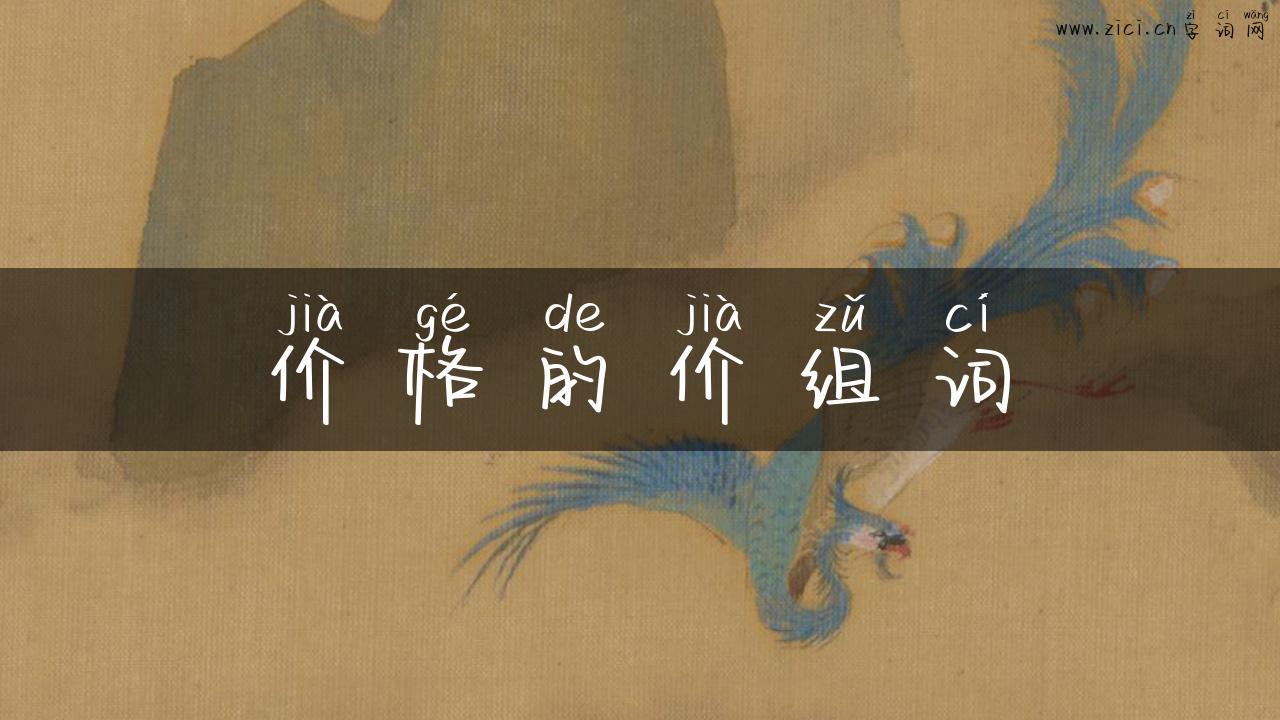 zì cí wǎng
www.zici.cn字词网
jià gé de jià zǔ cí
价格的价组词